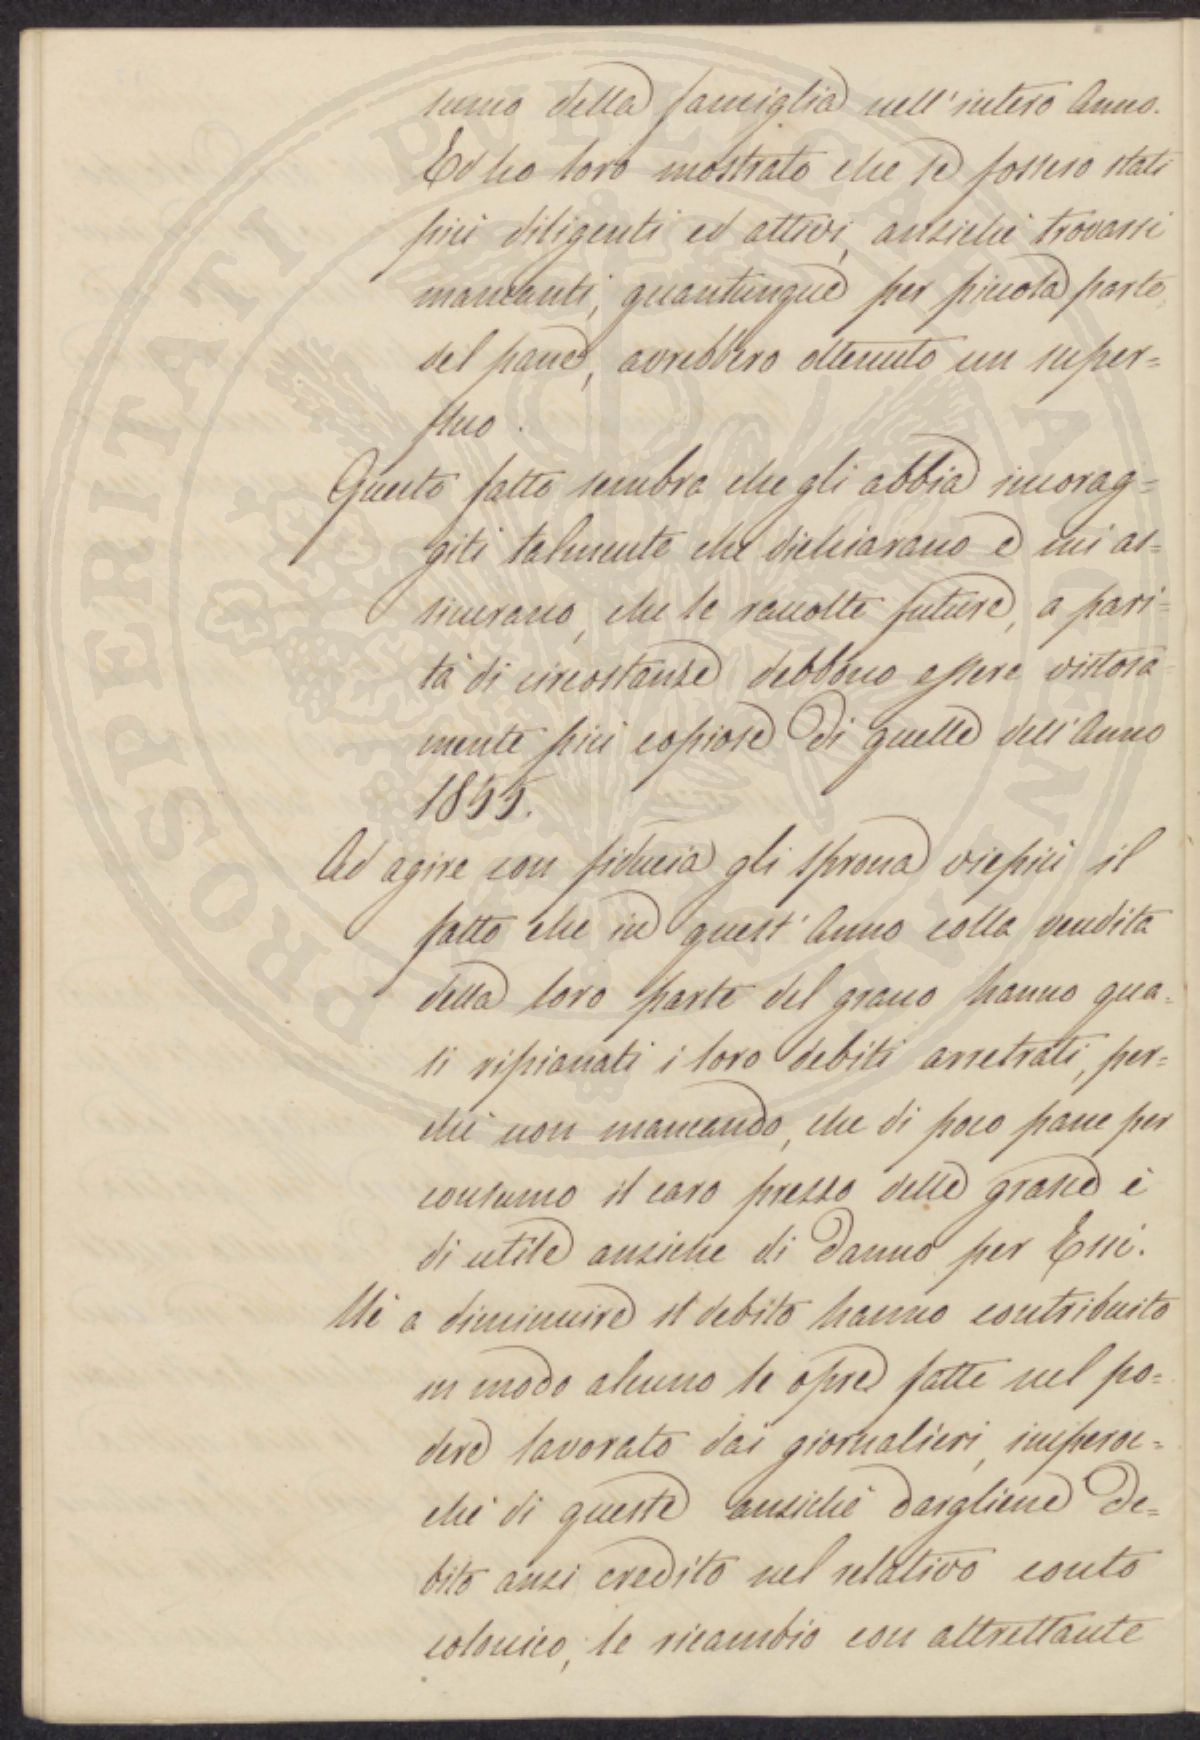 sumo della famiglia nell'intero Anno.
Ed ho loro mostrato che se fossero stati
più diligenti ed attivi, anzichè trovarsi
mancanti, quantunque per piccola parte
del pane, avrebbero ottenuto un super=
fluo.
Questo fatto sembra che gli abbia incorag=
giti talmente che dichiarano e mi as=
sicurano, che le raccolte future, a pari=
tà di circostanze debbono essere vistosa=
mente più copiose di quelle dell'Anno
1855.
Ad agire con fiducia gli sprona viepiù il
fatto che in quest'Anno colla vendita
della loro parte del grano hanno qua=
si ripianati i loro debiti arretrati, per=
chè non mancando, che di poco pane per
consumo il caro prezzo delle grasce è
di utile anziche di danno per Essi.
Nè a diminuire il debito hanno contribuito
in modo alcuno le opre fatte nel po=
dere lavorato dai giornalieri, imperoc=
chè di queste anzichè dargliene De=
bito anzi credito nel relativo conto
colonico, le ricambio con altrettante
PROSPERITATI PUBLICAE AUGENDAE